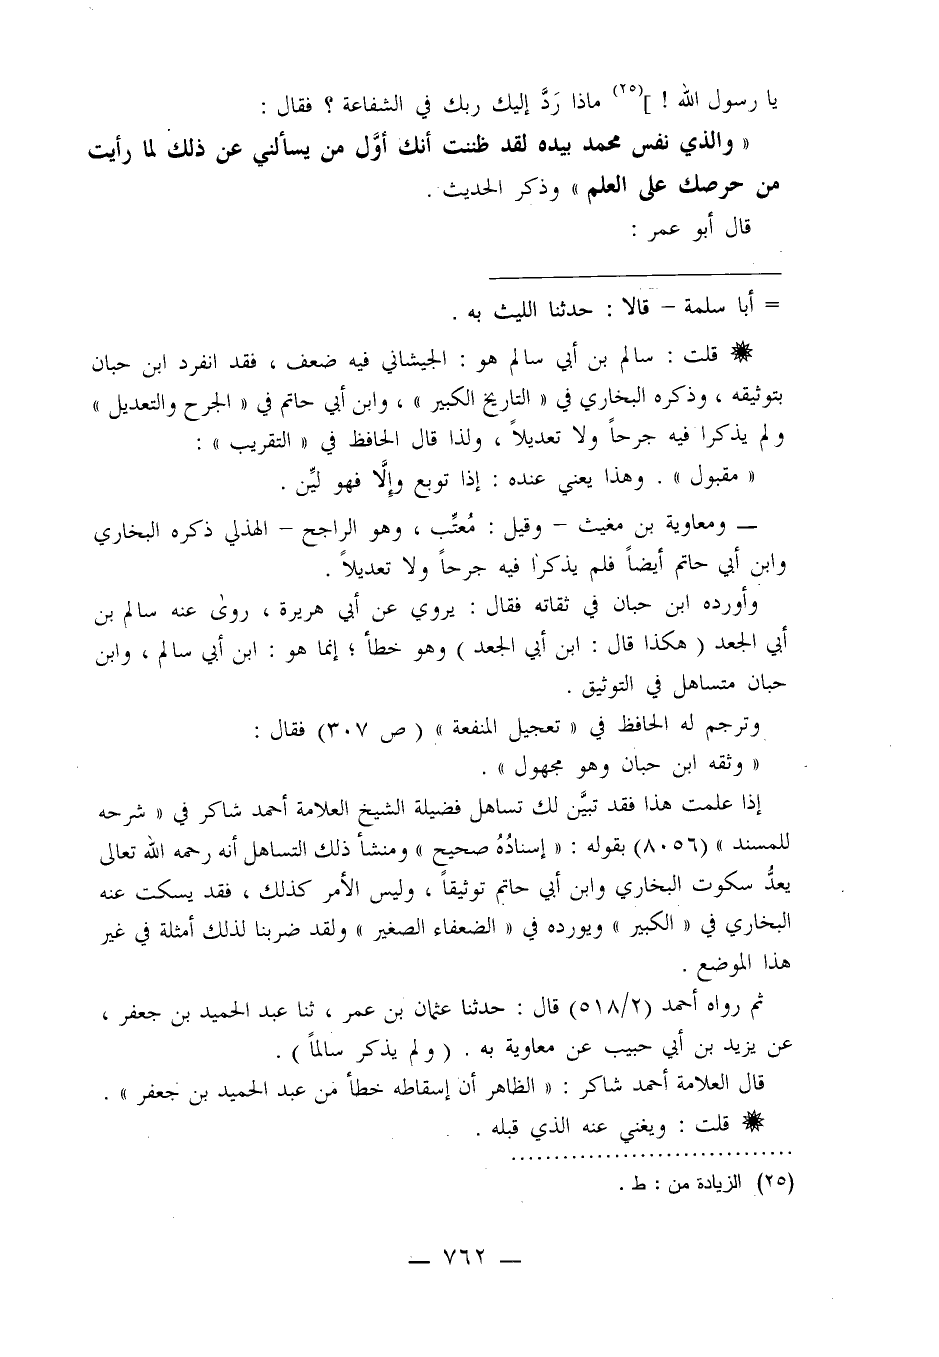 يا رسول الله ! ](٢٥) ماذا رَدَّ إليك ربك في الشفاعة ؟ فقال :
« والذي نفس محمد بيده لقد ظننت أنك أوَّل من يسألني عن ذلك لما رأيت
من حرصك على العلم » وذكر الحديث .
قال أبو عمر :
= أبا سلمة – قالا : حدثنا الليث به .
❋ قلت : سالم بن أبي سالم هو : الجيشاني فيه ضعف ، فقد انفرد ابن حبان
بتوثيقه ، وذكره البخاري في « التاريخ الكبير » ، وابن أبي حاتم في « الجرح والتعديل »
ولم يذكرا فيه جرحاً ولا تعديلاً ، ولذا قال الحافظ في « التقريب » :
« مقبول » . وهذا يعني عنده : إذا توبع وإلَّا فهو ليِّن .
— ومعاوية بن مغيث – وقيل : مُعتِّب ، وهو الراجح – الهذلي ذكره البخاري
وابن أبي حاتم أيضاً فلم يذكرا فيه جرحاً ولا تعديلاً .
وأورده ابن حبان في ثقاته فقال : يروي عن أبي هريرة ، روىٰ عنه سالم بن
أبي الجعد ( هكذا قال : ابن أبي الجعد ) وهو خطأ ؛ إنما هو : ابن أبي سالم ، وابن
حبان متساهل في التوثيق .
وترجم له الحافظ في « تعجيل المنفعة » ( ص ٣٠٧) فقال :
« وثقه ابن حبان وهو مجهول » .
إذا علمت هذا فقد تبيَّن لك تساهل فضيلة الشيخ العلامة أحمد شاكر في « شرحه
للمسند » (٨٠٥٦) بقوله : « إسنادُهُ صحيح » ومنشأ ذلك التساهل أنه رحمه الله تعالى
يعدُّ سكوت البخاري وابن أبي حاتم توثيقاً ، وليس الأمر كذلك ، فقد يسكت عنه
البخاري في « الكبير » ويورده في « الضعفاء الصغير » ولقد ضربنا لذلك أمثلة في غير
هذا الموضع .
ثم رواه أحمد (٥١٨/٢) قال : حدثنا عثمان بن عمر ، ثنا عبد الحميد بن جعفر ،
عن يزيد بن أبي حبيب عن معاوية به . ( ولم يذكر سالماً ) .
قال العلامة أحمد شاكر : « الظاهر أن إسقاطه خطأ من عبد الحميد بن جعفر » .
❋ قلت : ويغني عنه الذي قبله .
(٢٥) الزيادة من : ط .
— ٧٦٢ —